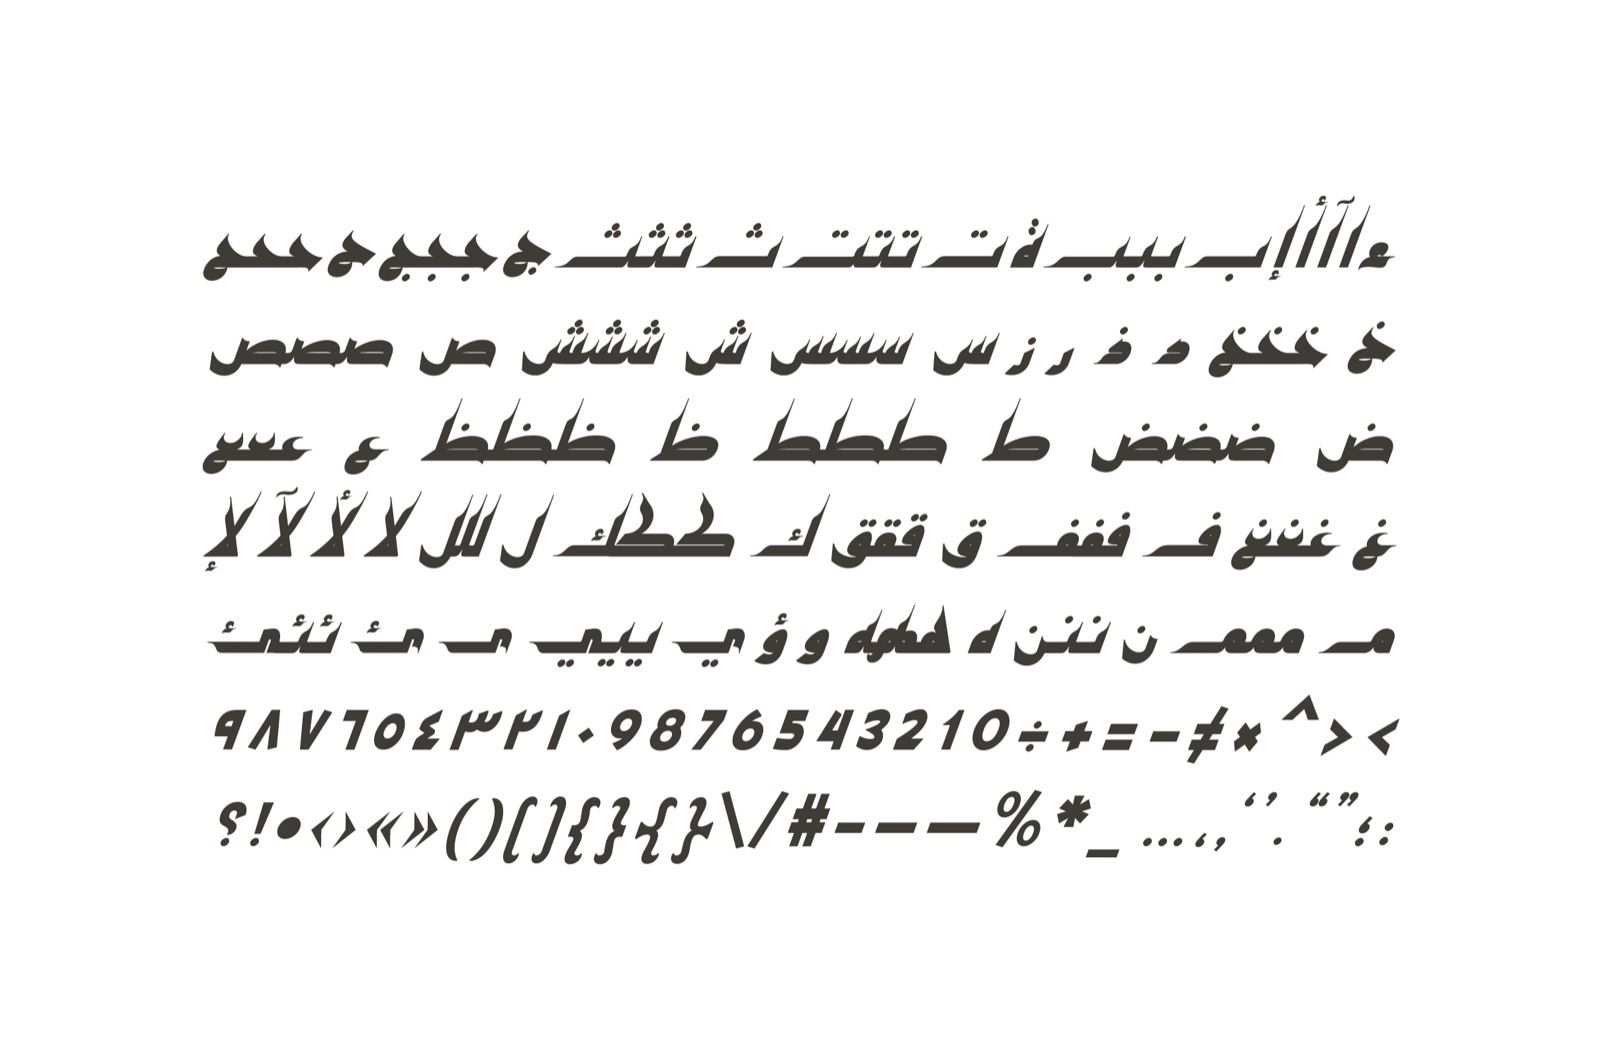 ء ا آ أ إ ب ببب ة ت تتت ث ثثث ج ججج ح ححح
خ خخخ د ذ ر ز س سسس ش ششش ص صصص
ض ضضض ط ططط ظ ظظظ ع ععع
غ غغغ ف ففف ق ققق ك ككك ل للل لا لأ لآ لإ
م ممم ن ننن ه ههه و ؤ ي ييي ى ئ ئئئ
٩٨٧٦٥٤٣٢١٠ 9876543210 ÷ + = - ≠ × ^ > <
؟!•‹›«»()[]{}{}\/#-–—%*_…،,‘’.“”؛: